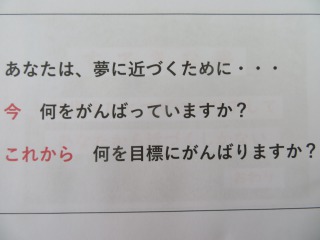 あなたは、夢に近づくために・・・
今　何をがんばっていますか？
これから　何を目標にがんばりますか？